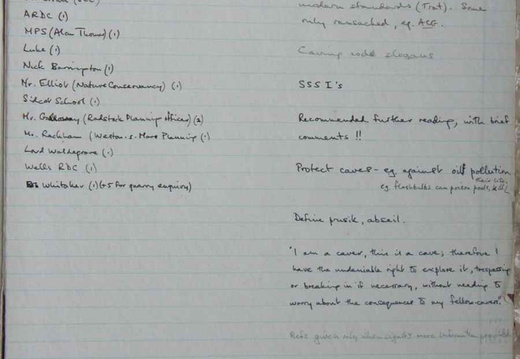 ARDC (1)
MPS (Alan Thomas) (1)
Luke (1)
Nick Barrington (1)
Mr. Elliot (Nature Conservancy) (1)
Sidcot School (1)
Mr. (Radstock Planning Officer)
Mr. Rackham (Weston-s-Mare Planning (1)
Lord Waldegrave (1)
Wells RDC (1)
Whitaker (1) (+5 for quarry enquiry)
modern standards (Trat). Some
only ransacked, eg. ACG.
Caving code slogans
SSSI's
Recommended further reading, with brief
comments !!
Protect caves - eg against oil pollution
eg. flashbulbs can poison pools,
Define prusik, abseil.
"I am a caver, this is a cave; therefore I
have the undeniable right to explore it, trespassing
or breaking in if necessary, without needing to
worry about the consequences to my fellow-cavers".
Refs given only when more information